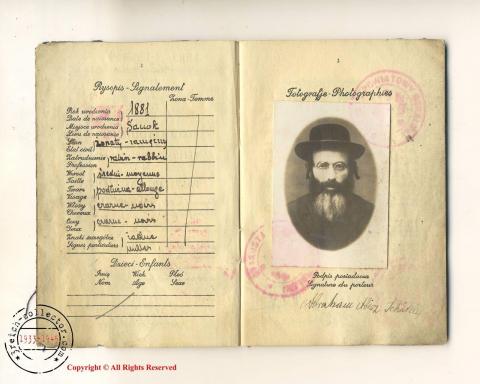 2
Rysopis-Signalement
Żona-Femme
Rok urodzenia 1881
Date de naissance
Miejsce urodzenia Sanok
Lieu de naissance
Stan żonaty-
Etat civil
Zatrudnienie rabin-rabbin
Profession
Wzrost średni-moyenne
Taille
Twarz
Visage
Włosy czarne-noirs
Cheveux
Oczy czarne-noirs
Yeux
Znaki szczególne
Signes particuliers
Dzieci-Enfants
Imię Wiek Płeć
Nom Age Sexe
3
Fotografje-Photographies
Podpis posiadacza
Signature du porteur
Abraham
3reich-collector.com
1933-1945
Copyright © All Rights Reserved